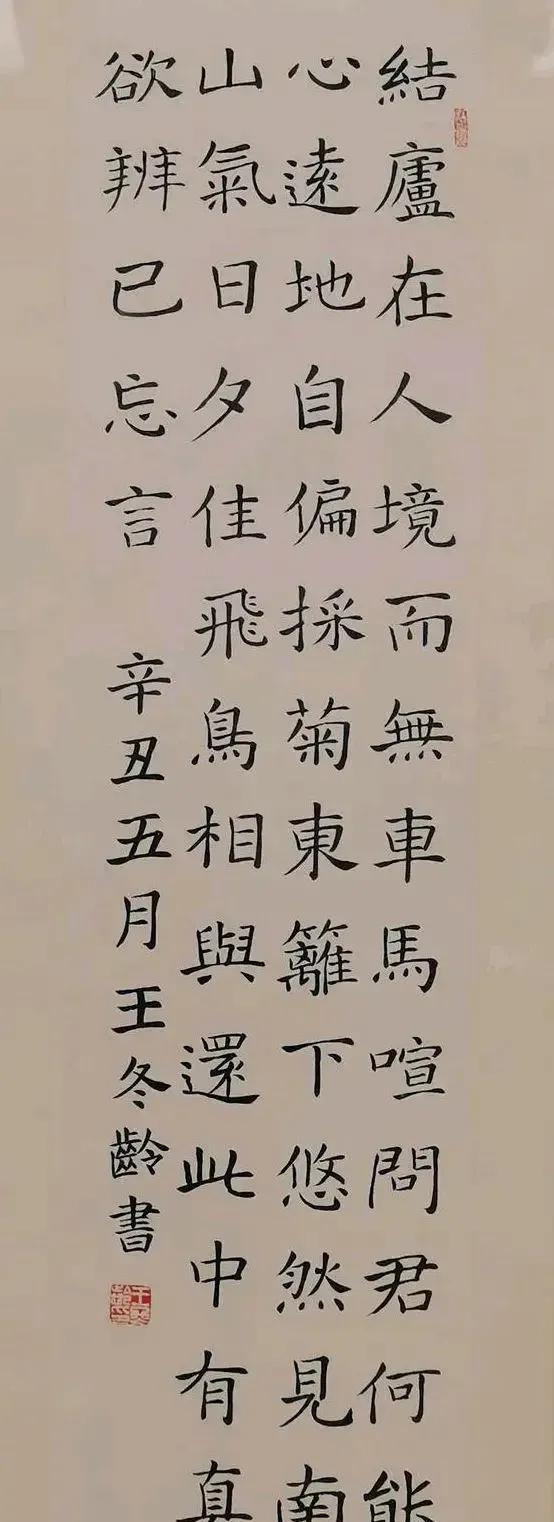 結廬在人境而無車馬喧問君何能
心遠地自偏採菊東籬下悠然見南
山氣日夕佳飛鳥相與還此中有真
欲辨已忘言
辛丑五月王冬齡書